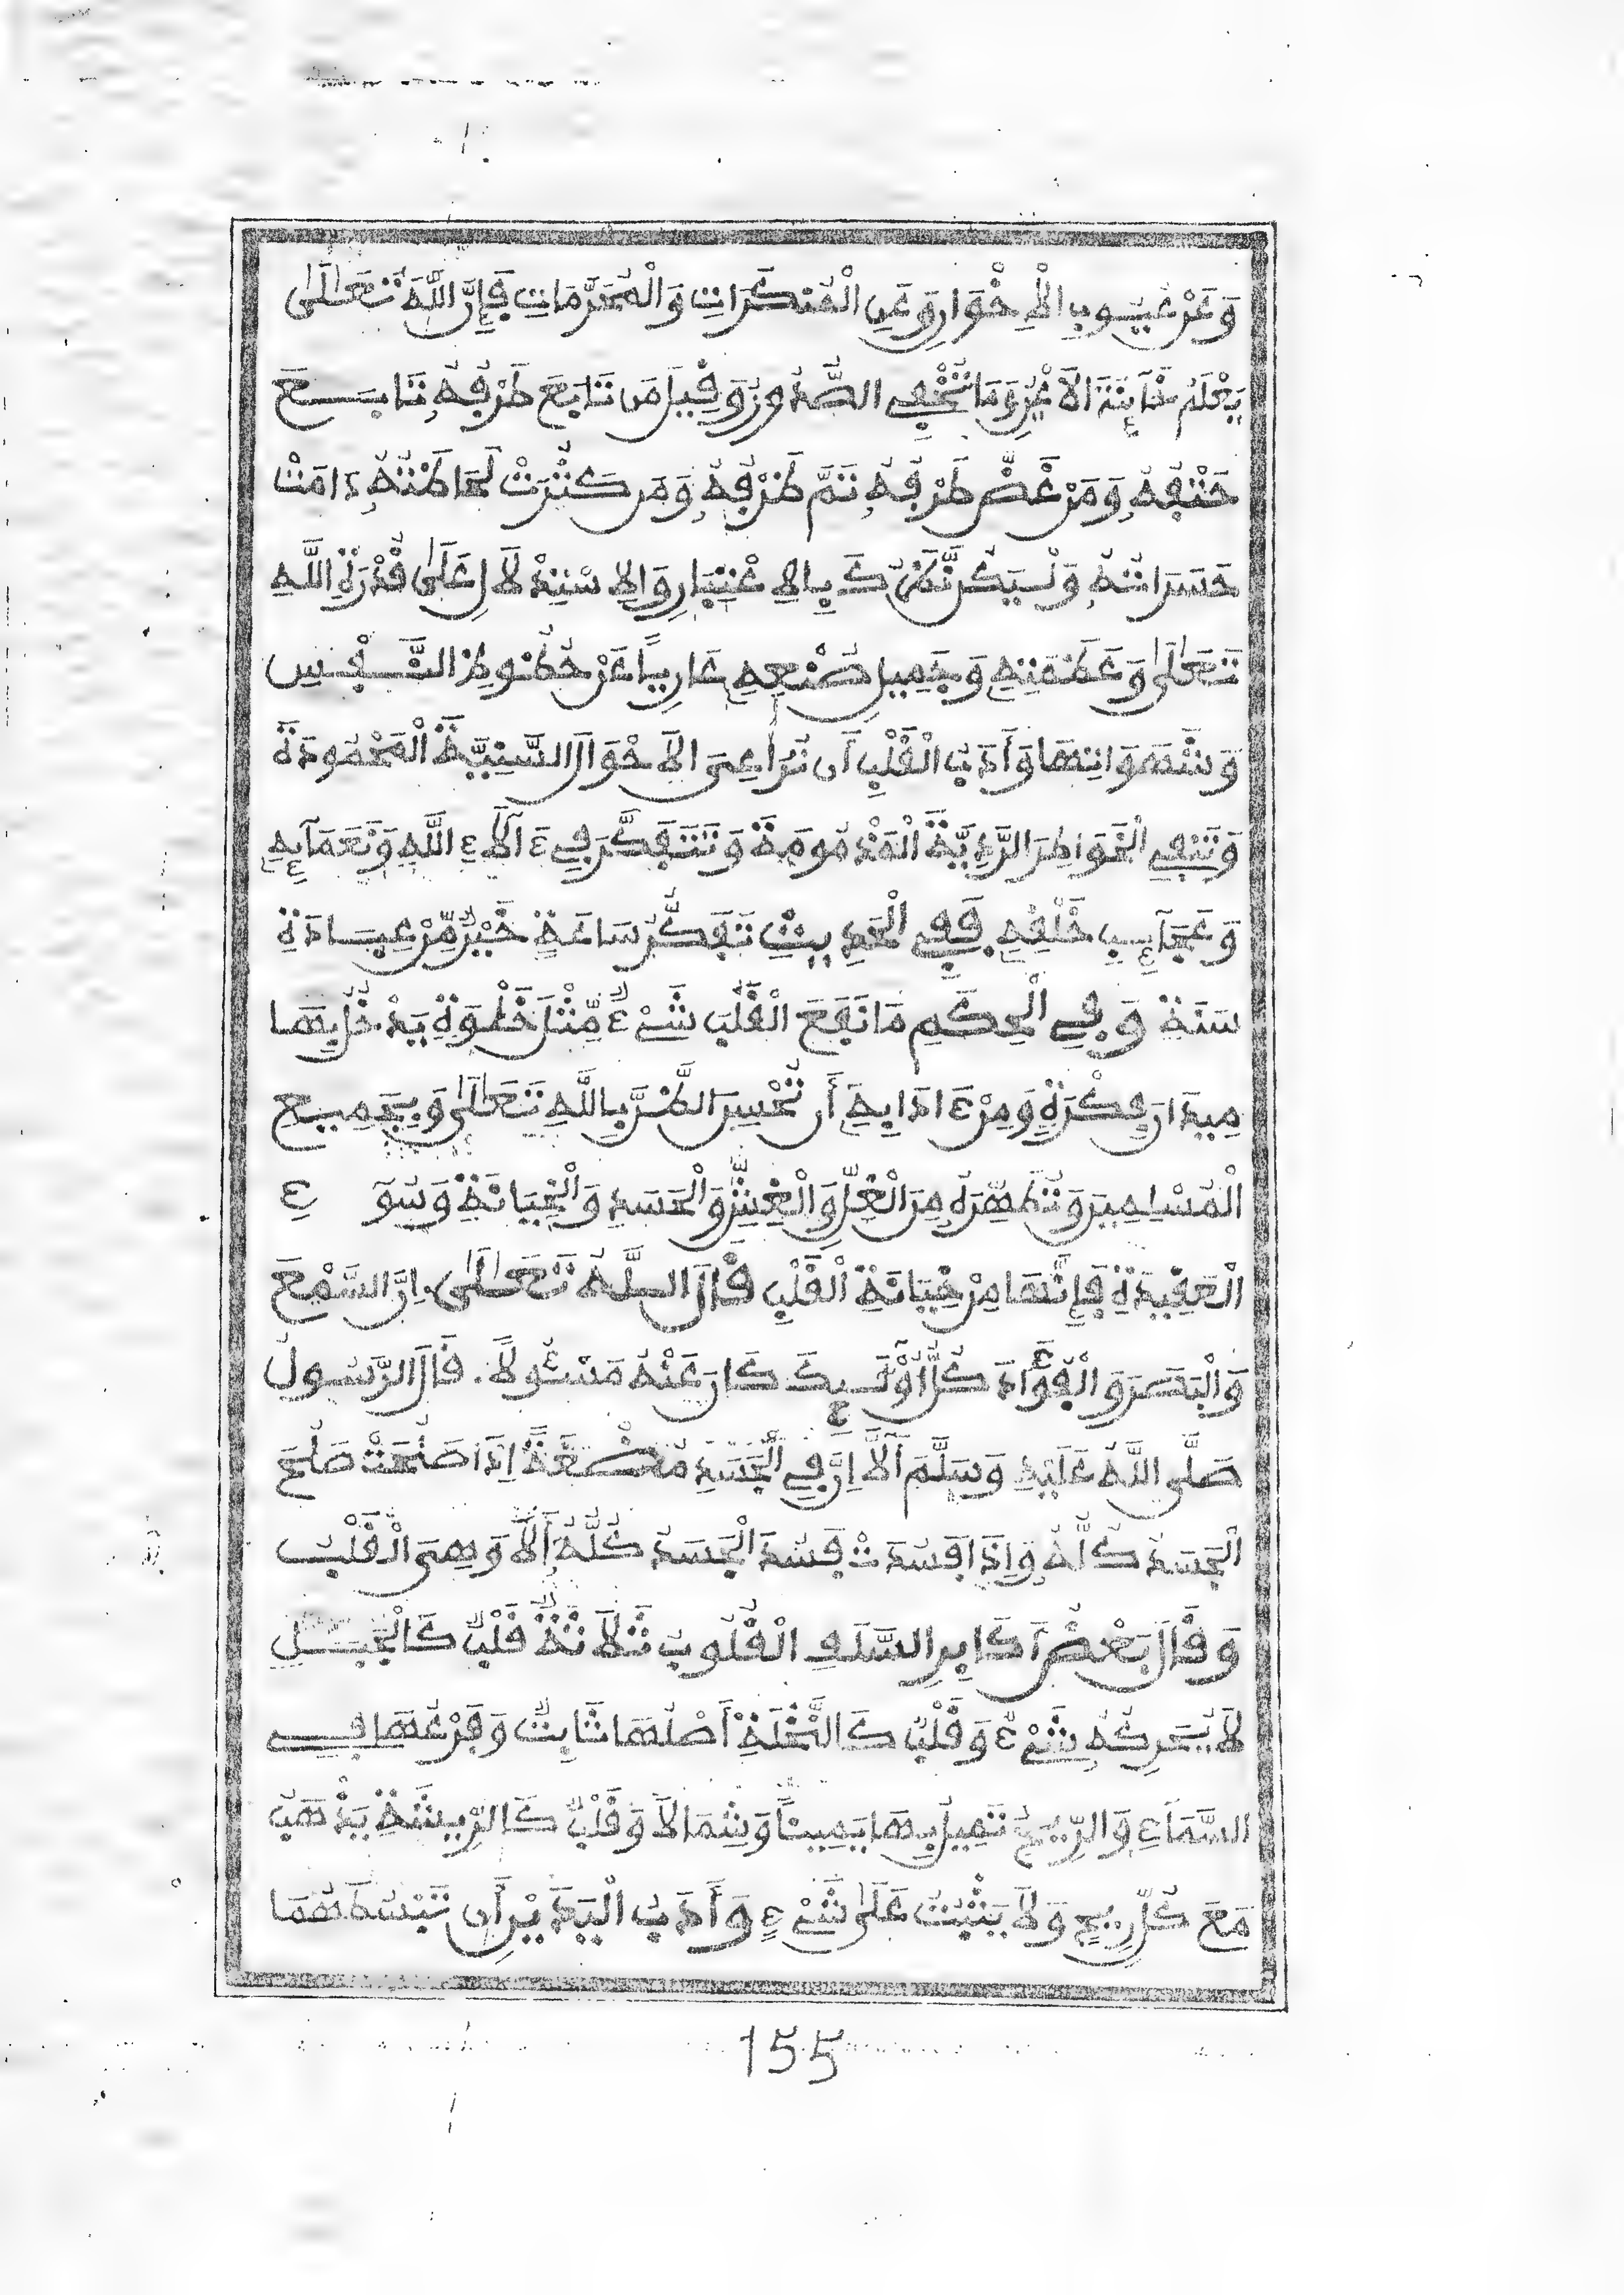 وَعَنْ عُيُوبِ الْإِخْوَانِ وَعَنِ الْمُنْكَرَاتِ وَالْمُحَرَّمَاتِ فَإِنَّ اللَّهَ تَعَالَى
يَعْلَمُ خَآئِنَةَ الْأَعْيُنِ وَمَا تُخْفِي الصُّدُورُ وَقِيلَ مَن تَابَعَ طَرْفَهُ تَابَعَ
حَتْفَهُ وَمَنْ غَضَّ طَرْفَهُ تَمَّ ظَرْفُهُ وَمَن كَثُرَتْ لَحَظَتُهُ دَامَتْ
حَسَرَاتُهُ وَلْيَكُن نَّظَرُكَ بِالِاعْتِبَارِ وَالِاسْتِدْلَالِ عَلَى قُدْرَةِ اللَّهِ
تَعَالَى وَعَظَمَتِهِ وَجَمِيلِ صُنْعِهِ عَارِيًا عَنْ حُظُوظِ النَّفْسِ
وَشَهَوَاتِهَا وَأَدَبُ الْقَلْبِ أَن تُرَاعِيَ الْأَحْوَالَ السَّنِيَّةَ الْمَحْمُودَةَ
وَتَنْفِيَ الْخَوَاطِرَ الرَّدِيَّةَ الْمَذْمُومَةَ وَتَتَفَكَّرَ فِي ءَالَآءِ اللَّهِ وَنَعْمَآئِهِ
وَعَجَآئِبِ خَلْقِهِ فَفِي الْحَدِيثِ تَفَكُّرُ سَاعَةٍ خَيْرٌ مِّنْ عِبَادَةِ
سَنَةٍ وَفِي الْحِكَمِ مَا نَفَعَ الْقَلْبَ شَيْءٌ مِّثْلُ خَلْوَةٍ يَدْخُلُ بِهَا
مِيدَانَ فِكْرَةٍ وَمِنْ ءَادَابِهِ أَن تُحْسِنَ الظَّنَّ بِاللَّهِ تَعَالَى وَبِجَمِيعِ
الْمُسْلِمِينَ وَتُطَهِّرَهُ مِنَ الْغِلِّ وَالْغِشِّ وَالْحَسَدِ وَالْخِيَانَةِ وَسُوٓءِ
الْعَقِيدَةِ فَإِنَّهَا مِنْ خِيَانَةِ الْقَلْبِ قَالَ اللَّهُ تَعَالَى. اِنَّ السَّمْعَ
وَالْبَصَرَ وَالْفُؤَادَ كُلُّ أُوْلَٰٓئِكَ كَانَ عَنْهُ مَسْـُٔولًا. قَالَ الرَّسُولُ
صَلَّى اللَّهُ عَلَيْهِ وَسَلَّمَ أَلَآ اِنَّ فِي الْجَسَدِ مُضْغَةً إِذَا صَلُحَتْ صَلُحَ
الْجَسَدُ كُلُّهُ وَإِذَا فَسُدَتْ فَسُدَ الْجَسَدُ كُلُّهُ أَلَا وَهِيَ الْقَلْبُ
وَقَالَ بَعْضُ أَكَابِرِ السَّلَفِ الْقُلُوبُ ثَلَاثَةٌ قَلْبٌ كَالْجَبَلِ
لَا يُحَرِّكُهُ شَيْءٌ وَقَلْبٌ كَالنَّخْلَةِ أَصْلُهَا ثَابِتٌ وَفَرْعُهَا فِي
السَّمَآءِ وَالرِّيحُ تَمِيلُ بِهَا يَمِينًا وَشِمَالًا وَقَلْبٌ كَالرِّيشَةِ يَذْهَبُ
مَعَ كُلِّ رِيحٍ وَلَا يَثْبُتُ عَلَى شَيْءٍ وَأَدَبُ الْيَدَيْنِ أَن تَبْسُطَهُمَا
155